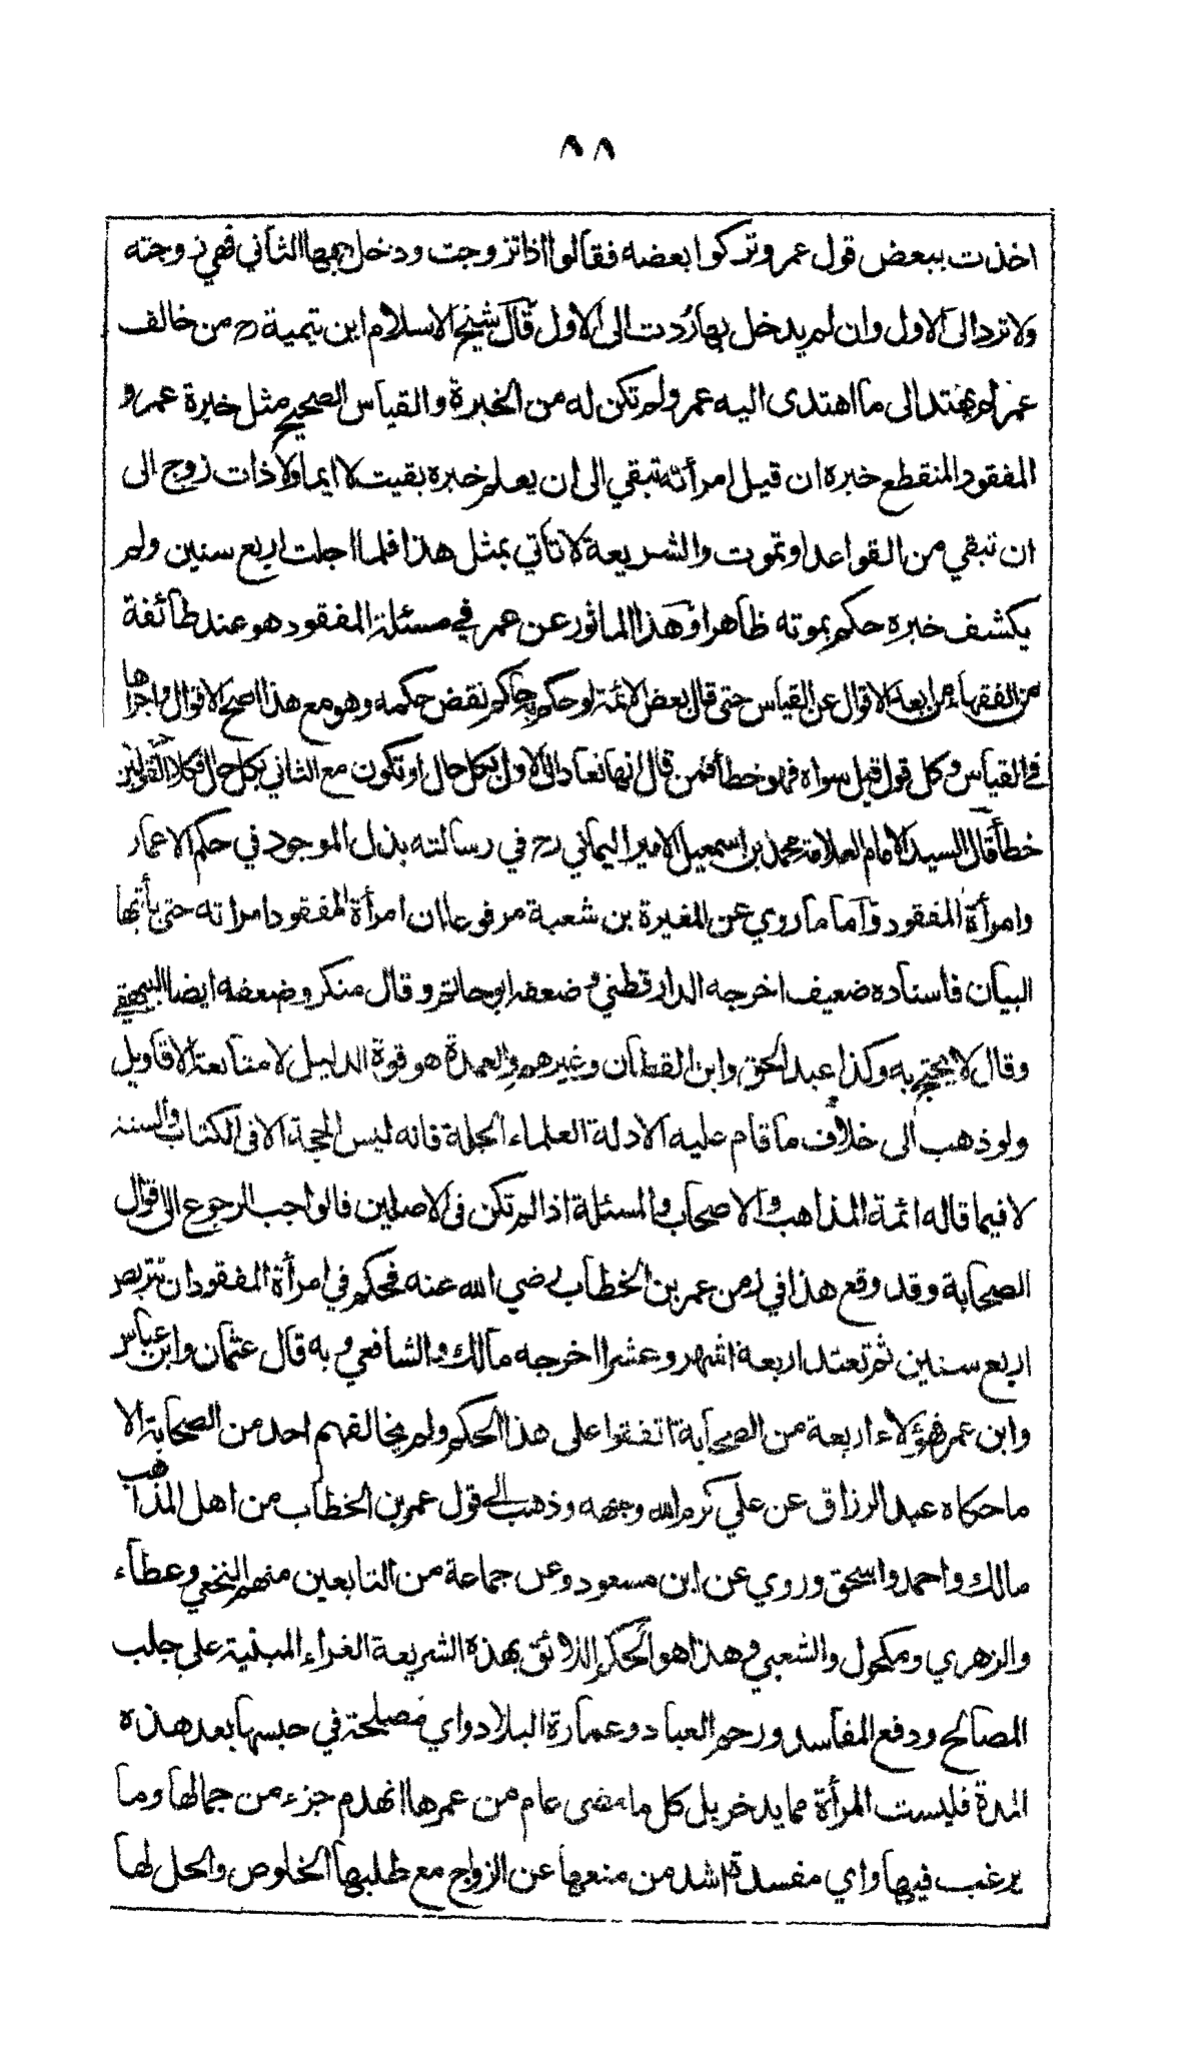 ٨٨
اخذت ببعض قول عمر وتركوا بعضه فقالوا اذا تزوجت ودخل بها الثاني فهي زوجته
ولا ترد الى الاول وان لم يدخل بها رُدت الى الاول قال شيخ الاسلام ابن تيمية رح من خالف
عمر لم يهتد الى ما اهتدى اليه عمر ولم تكن له من الخبرة والقياس الصحيح مثل خبرة عمر و
المفقود المنقطع خبره ان قيل امرأته تبقي الى ان يعلم خبره بقيت لا ايما ولا ذات زوج الى
ان تبقي من القواعد او تموت والشريعة لا تأتي بمثل هذا فلما اجلت اربع سنين ولم
يكشف خبره حكم بموته ظاهرا وهذا الماثور عن عمر في مسئلة المفقود هو عند طائفة
من الفقهاء من ابعد الاقوال عن القياس حتى قال بعض الائمة لو حكم به حاكم نقض حكمه وهو مع هذا اصح الاقوال واجراها
في القياس وكل قول قيل سواه فهو خطأ فمن قال انها تعاد الى الاول بكل حال او تكون مع الثاني بكل حال فكلا القولين
خطأ قال السيد الامام العلامة محمد بن اسمعيل الامير اليماني رح في رسالته بذل الموجود في حكم الاعمار
وامرأة المفقود واما ما روي عن المغيرة بن شعبة مرفوعا ان امرأة المفقود امراته حتى يأتها
البيان فاسناده ضعيف اخرجه الدارقطني وضعفه ابو حاتم وقال منكر وضعفه ايضا البيهقي
وقال لا يحتج به وكذا عبد الحق وابن القطان وغيرهم والعمدة هو قوة الدليل لا متابعة الاقاويل
ولو ذهب الى خلاف ما قام عليه الادلة العلماء الجلة فانه ليس الحجة الا في الكتاب والسنة
لا فيما قاله ائمة المذاهب والاصحاب والمسئلة اذا لم تكن في الاصلين فالواجب الرجوع الى اقوال
الصحابة وقد وقع هذا في زمن عمر بن الخطاب رضي الله عنه فحكم في امرأة المفقود ان تتربص
اربع سنين ثم تعتد اربعة اشهر وعشرا اخرجه مالك والشافعي وبه قال عثمان وابن عباس
وابن عمر فهؤلاء اربعة من الصحابة اتفقوا على هذا الحكم ولم يخالفهم احد من الصحابة الا
ما حكاه عبد الرزاق عن علي كرم الله وجهه وذهب الى قول عمر بن الخطاب من اهل المذاهب
مالك واحمد واسحق وروي عن ابن مسعود وعن جماعة من التابعين منهم النخعي وعطاء
والزهري ومكحول والشعبي وهذا هو الحكم اللائق بهذه الشريعة الغراء المبنية على جلب
المصالح ودفع المفاسد ورحم العباد وعمارة البلاد واي مصلحة في حبسها بعد هذه
المدة فليست المرأة مما يدخر بل كل ما مضى عام من عمرها انهدم جزء من جمالها وما
يرغب فيها واي مفسدة اشد من منعها عن الزواج مع طلبها الخلوص والحل لها